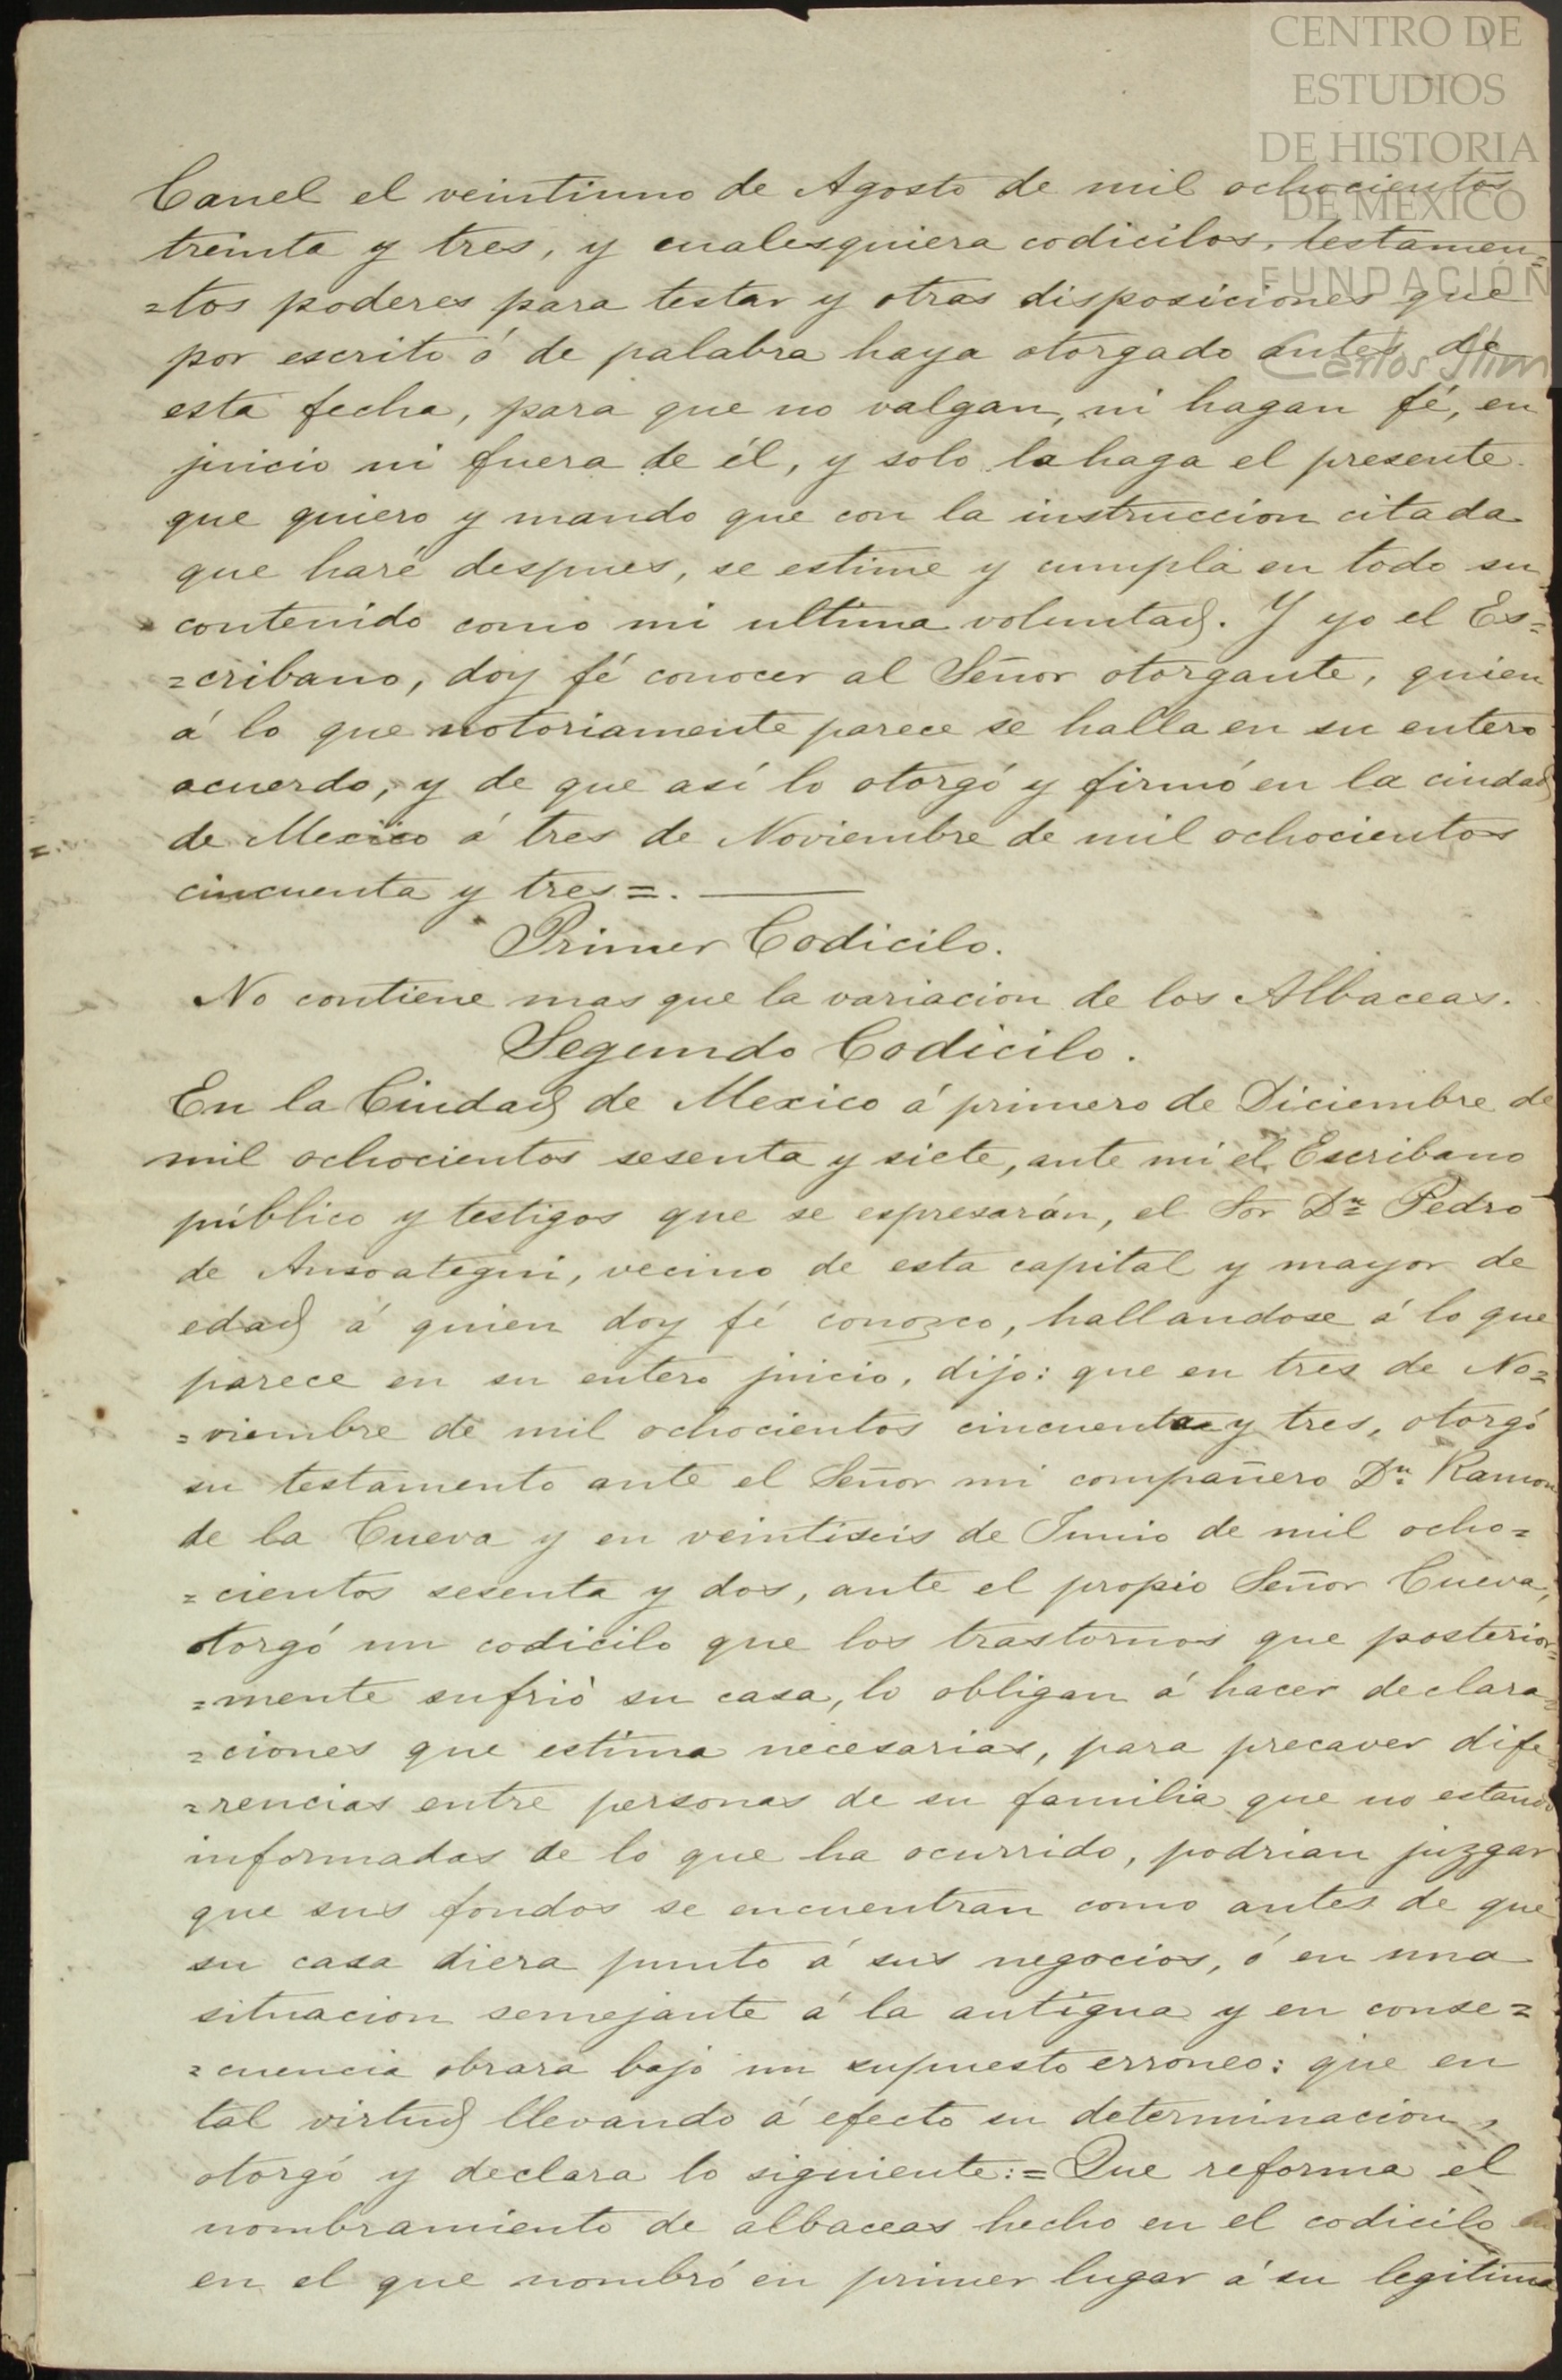 CENTRO DE
ESTUDIOS
DE HISTORIA
DE MEXICO
FUNDACIÓN
Carlos Slim
Canel el veintiuno de Agosto de mil ochocientos
treinta y tres, y cualesquiera codicilos, testamen=
=tos poderes para testar y otras disposiciones que
por escrito ó de palabra haya otorgado antes de
esta fecha, para que no valgan, ni hagan fé, en
juicio ni fuera de él, y solo la haga el presente
que quiero y mando que con la instruccion citada
que haré despues, se estime y cumpla en todo su
contenido como mi ultima voluntad. Y yo el Es=
=cribano, doy fé conocer al Señor otorgante, quien
á lo que notoriamente parece se halla en su entero
acuerdo, y de que así lo otorgó y firmó en la ciudad
de Mexico á tres de Noviembre de mil ochocientos
cincuenta y tres=.
Primer Codicilo.
No contiene mas que la variacion de los Albaceas.
Segundo Codicilo.
En la Ciudad de Mexico á primero de Diciembre de
mil ochocientos sesenta y siete, ante mi el Escribano
público y testigos que se espresarán, el Sor Dn Pedro
de Ansoategui, vecino de esta capital y mayor de
edad á quien doy fé conozco, hallandose á lo que
parece en su entero juicio, dijo: que en tres de No=
=viembre de mil ochocientos cincuenta y tres, otorgó
su testamento ante el Señor mi compañero Dn. Ramon
de la Cueva y en veintiseis de Junio de mil ocho=
=cientos sesenta y dos, ante el propio Señor Cueva,
otorgó un codicilo que los trastornos que posterior=
=mente sufrió su casa, lo obligan á hacer declara=
=ciones que estima necesarias, para precaver dife=
=rencias entre personas de su familia que no estando
informadas de lo que ha ocurrido, podrian juzgar
que sus fondos se encuentran como antes de que
su casa diera punto á sus negocios, ó en una
situacion semejante á la antigua y en conse=
=cuencia obrara bajo un supuesto erroneo: que en
tal virtud llevando á efecto su determinacion,
otorgó y declara lo siguiente:=Que reforma el
nombramiento de albaceas hecho en el codicilo
en el que nombró en primer lugar á su legitima